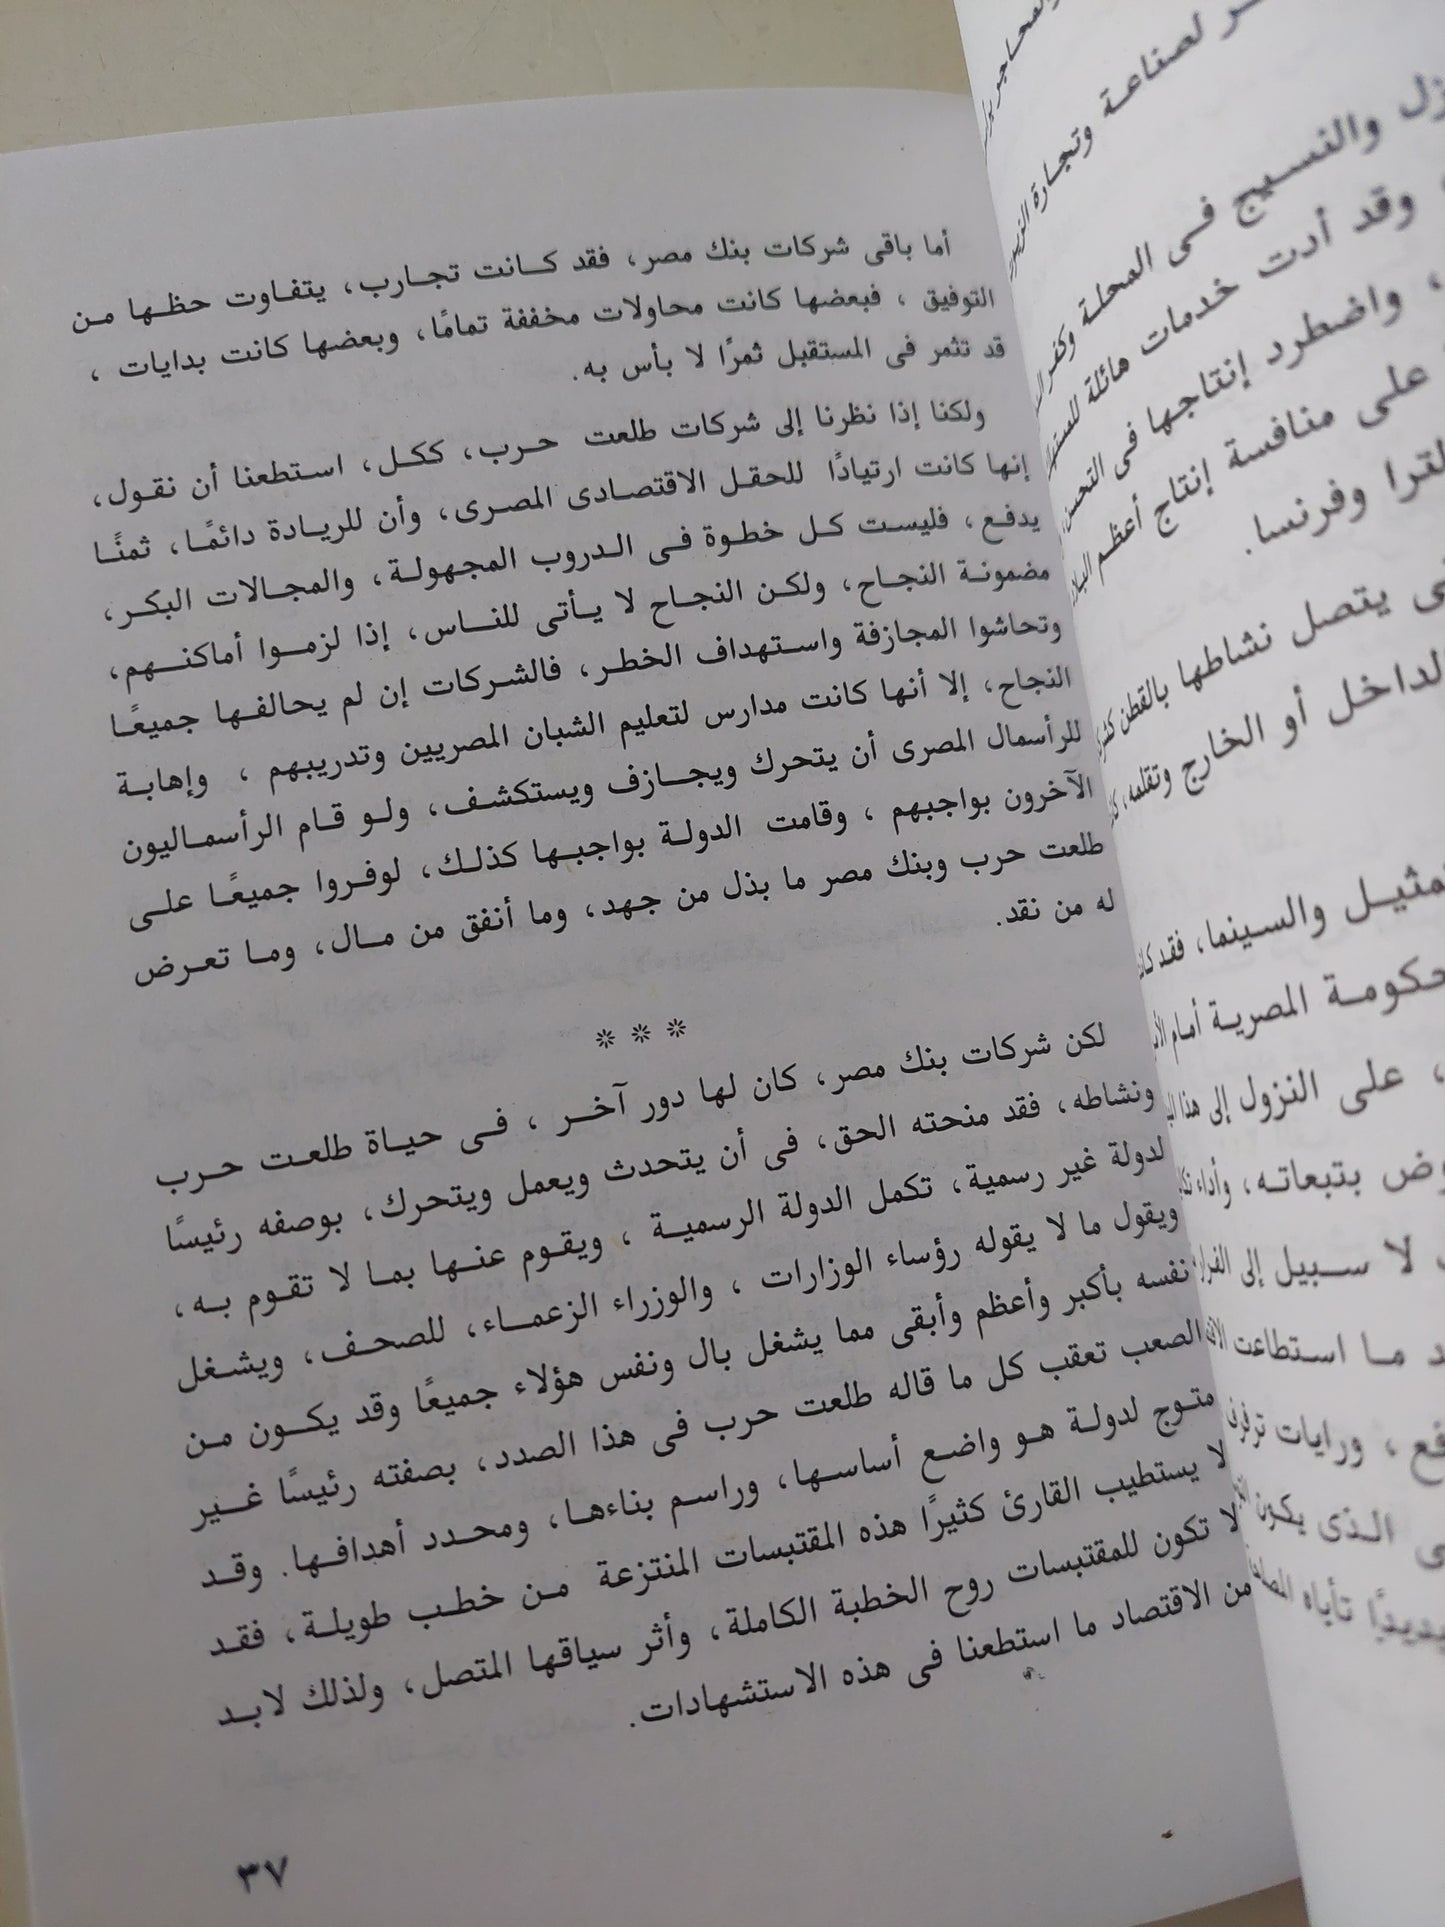 أما باقى شركات بنك مصر، فقد كانت تجارب، يتفاوت حظها من
التوفيق ، فبعضها كانت محاولات مخففة تمامًا، وبعضها كانت بدايات ،
قد تثمر فى المستقبل ثمرًا لا بأس به.
ولكنا إذا نظرنا إلى شركات طلعت حرب، ككل، استطعنا أن نقول،
إنها كانت ارتيادًا للحقل الاقتصادى المصرى، وأن للريادة دائمًا، ثمنًا
يدفع، فليست كل خطوة فى الدروب المجهولة، والمجالات البكر،
مضمونة النجاح، ولكن النجاح لا يأتى للناس، إذا لزموا أماكنهم،
وتحاشوا المجازفة واستهداف الخطر، فالشركات إن لم يحالفها جميعًا
النجاح، إلا أنها كانت مدارس لتعليم الشبان المصريين وتدريبهم ، وإهابة
للرأسمال المصرى أن يتحرك ويجازف ويستكشف، ولو قام الرأسماليون
الآخرون بواجبهم ، وقامت الدولة بواجبها كذلك، لوفروا جميعًا على
طلعت حرب وبنك مصر ما بذل من جهد، وما أنفق من مال، وما تعرض
له من نقد.
* * *
لكن شركات بنك مصر، كان لها دور آخر ، فى حياة طلعت حرب
ونشاطه، فقد منحته الحق، فى أن يتحدث ويعمل ويتحرك، بوصفه رئيسًا
لدولة غير رسمية، تكمل الدولة الرسمية ، ويقوم عنها بما لا تقوم به،
ويقول ما لا يقوله رؤساء الوزارات ، والوزراء الزعماء، للصحف، ويشغل
نفسه بأكبر وأعظم وأبقى مما يشغل بال ونفس هؤلاء جميعًا وقد يكون من
الصعب تعقب كل ما قاله طلعت حرب فى هذا الصدد، بصفته رئيسًا غير
متوج لدولة هو واضع أساسها، وراسم بناءها، ومحدد أهدافها. وقد
لا يستطيب القارئ كثيرًا هذه المقتبسات المنتزعة من خطب طويلة، فقد
لا تكون للمقتبسات روح الخطبة الكاملة، وأثر سياقها المتصل، ولذلك لابد
من الاقتصاد ما استطعنا فى هذه الاستشهادات.
٣٧
لصناعة وتجارة
والنسيج فى المحلة وكفر
وقد أدت خدمات هائلة
، واضطرد إنتاجها فى
على منافسة إنتاج أعظم
وفرنسا.
يتصل نشاطها بالقطن
الداخل أو الخارج وتقلمه،
والسينما، فقد
المصرية أمام
، على النزول إلى هذا
بتبعاته، وأداء
لا سبيل إلى
ما استطاعت
، ورايات
الذى يكون
تأباه